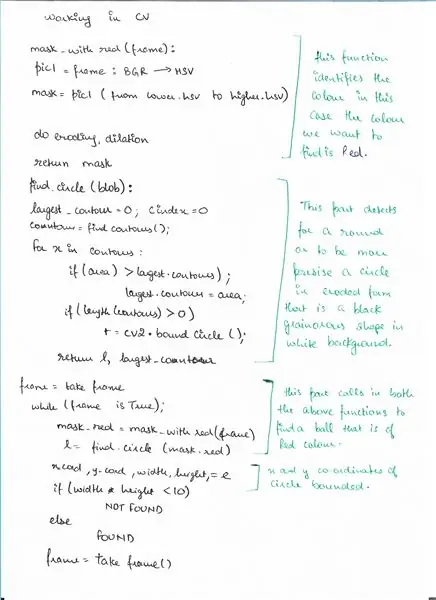 working in CV
mask_with red (frame):
pic1 = frame : BGR → HSV
mask = pic1 (from lower.hsv to higher.hsv)
do eroding, dilation
return mask
this function
identifies the
colour in this
case the colour
we want to
find is Red.
find_circle (blob):
largest_contour = 0; cindex = 0
countour = find contours();
for x in contours :
if (area) > largest.contours) ;
largest.contour = area;
if (length (contours) > 0)
r = cv2 • bound circle ();
return l, largest_countour
This part detects
for a round
or to be more
presise a circle
in eroded form
that is a black
shape in
white background.
frame = take frame
while (frame is True);
mask_red = mask_with red (frame)
l = find_circle (mask.red)
x cod, y-cod, width, height, = l
if (width & height < 10)
NOT FOUND
else
FOUND
frame = take frame()
this part calls in both
the above functions to
find a ball that is of
Red colour.
x and y co-ordinates of
circle bounded.